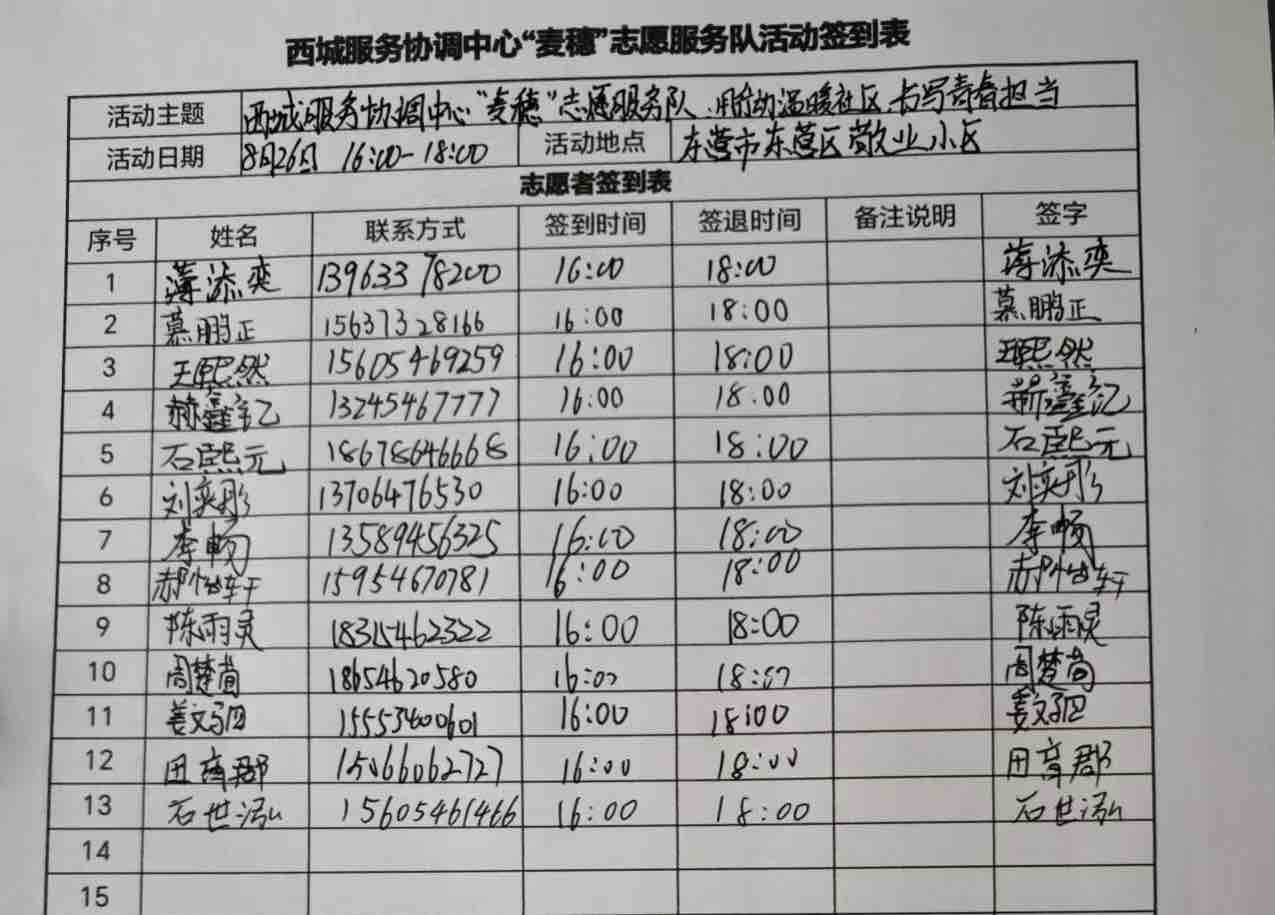 西城服务协调中心“麦穗”志愿服务队活动签到表
活动主题 西城服务协调中心“麦穗”志愿服务队 用行动温暖社区 书写青春担当
活动日期 8月26日 16:00-18:00 活动地点 东营市东营区敬业小区
志愿者签到表
序号 姓名 联系方式 签到时间 签退时间 备注说明 签字
1 薄添奕 13963378200 16:00 18:00 薄添奕
2 慕鹏正 15637328166 16:00 18:00 慕鹏正
3 王熙然 15605469259 16:00 18:00 王熙然
4 13245467777 16:00 18:00
5 石熙元 18678646668 16:00 18:00 石熙元
6 刘奕彤 13706476530 16:00 18:00 刘奕彤
7 李畅 13589456325 16:00 18:00 李畅
8 郝怡轩 15954670781 16:00 18:00 郝怡轩
9 陈雨灵 18315462322 16:00 18:00 陈雨灵
10 周楚尚 18654620580 16:00 18:00 周楚尚
11 15553400601 16:00 18:00
12 田育郡 15066062727 16:00 18:00 田育郡
13 石世泓 15605461466 16:00 18:00 石世泓
14
15